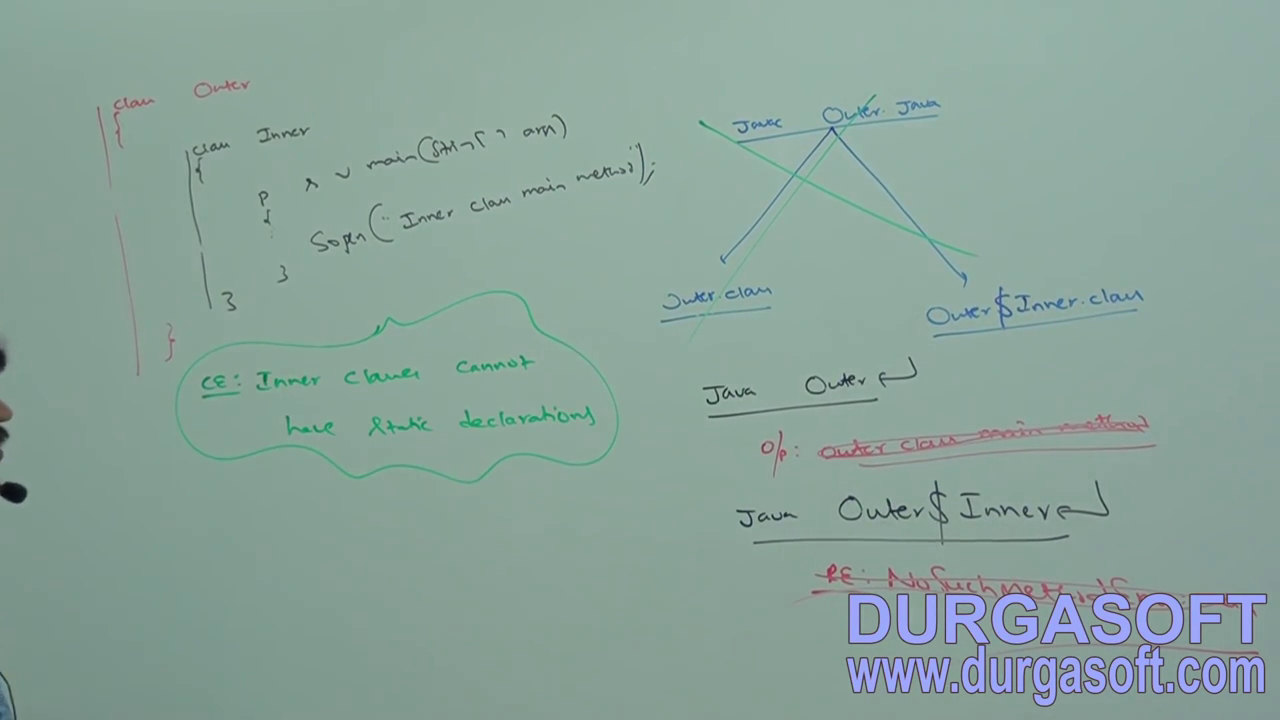 class Outer
{
class Inner
{
p s v main(String[] args)
{
Sopln("Inner class main method");
}
}
}
CE: Inner classes cannot
have static declarations
Javac Outer.Java
Outer.class
Outer$Inner.class
Java Outer
O/p: Outer class main method
Java Outer$Inner
RE: NoSuchMethod
DURGASOFT
www.durgasoft.com